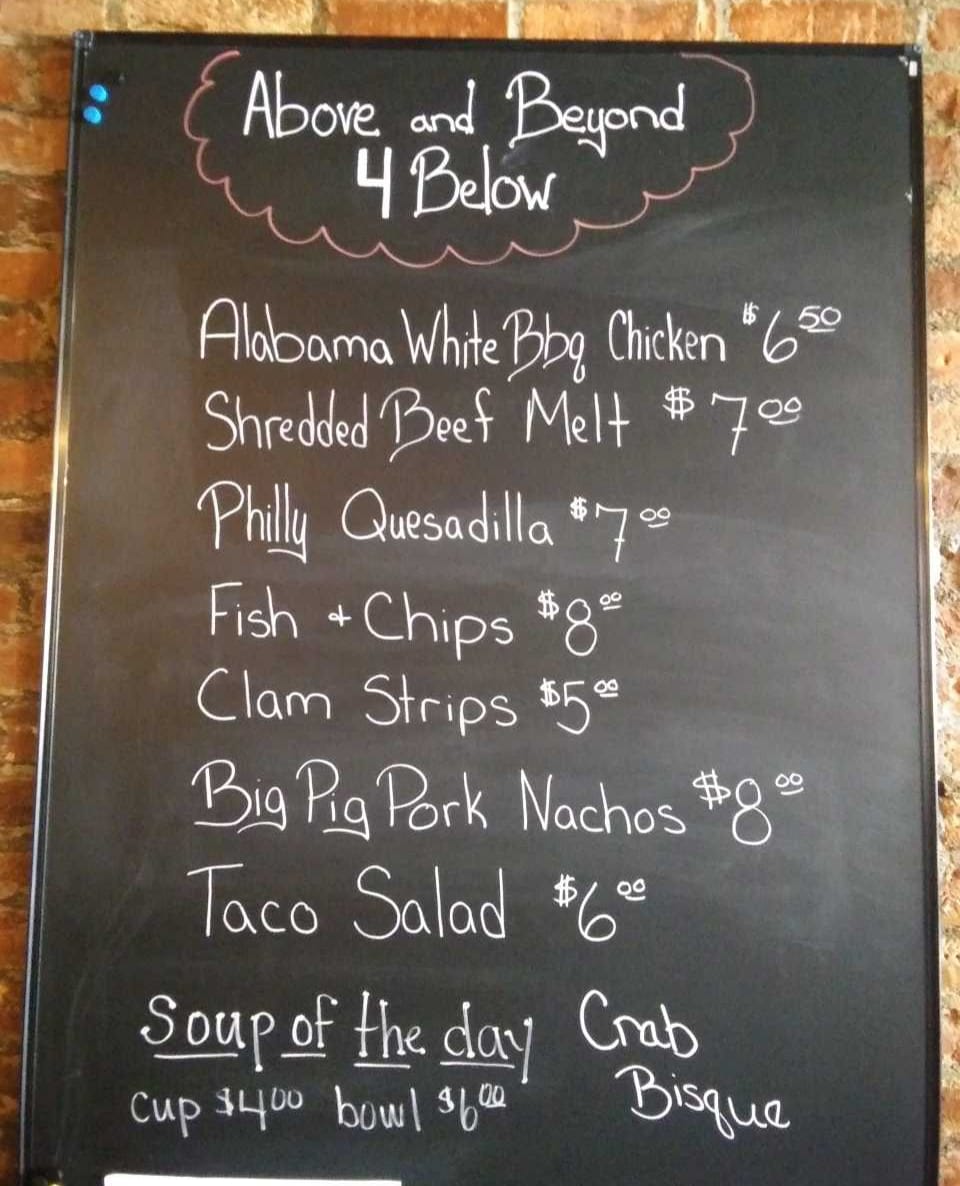 Above and Beyond
4 Below
Alabama White Bbq Chicken $6.50
Shredded Beef Melt $7.00
Philly Quesadilla $7.00
Fish + Chips $8.00
Clam Strips $5.00
Big Pig Pork Nachos $8.00
Taco Salad $6.00
Soup of the day Crab
Bisque
cup $4.00 bowl $6.00